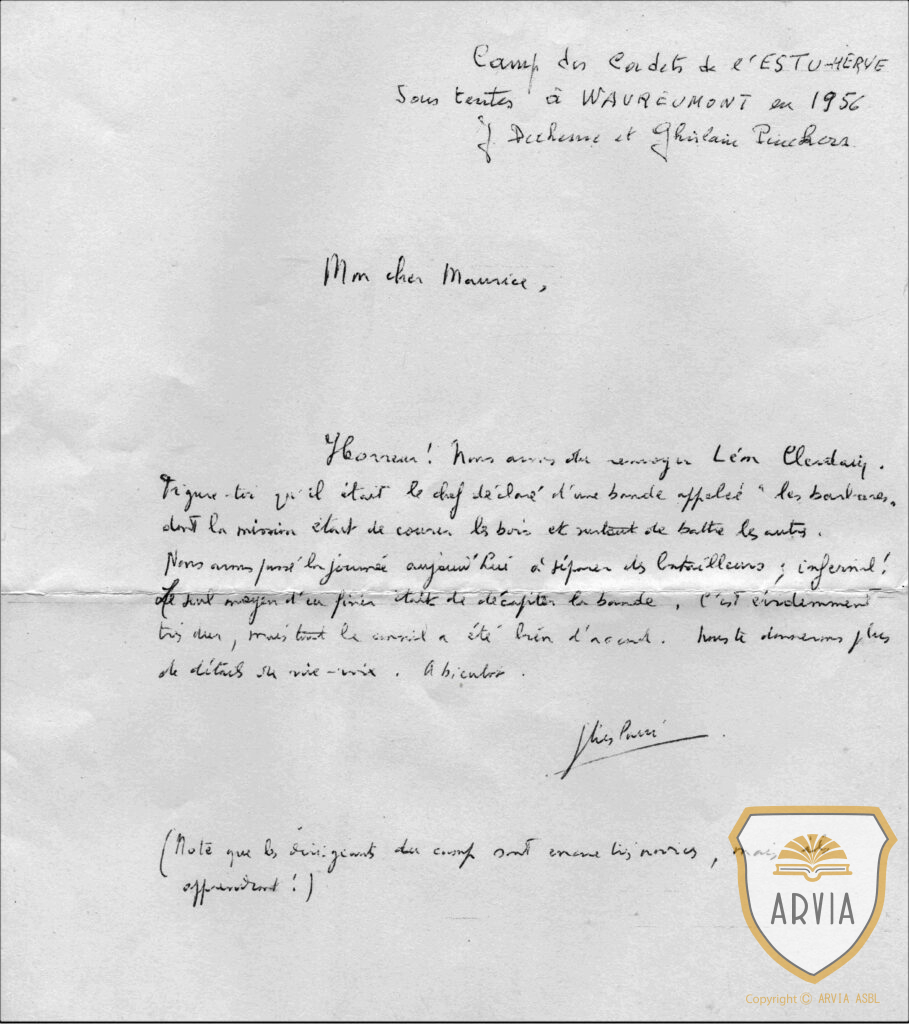 Camp des Cadets de l'ESTU-HERVE
Sous tentes à WAVREUMONT en 1956
J Duchesne et Ghislain Pinckers
Mon cher Maurice,
Horreur! Nous avons du renvoyer Léon
Figure-toi qu'il était le chef déclaré d'une bande appelée "les barbares"
dont la mission était de courir les bois et surtout de battre les autres.
Nous avons passé la journée aujourd'hui à séparer des batailleurs ; infernal!
Le seul moyen d'en finir était de décapiter la bande. C'est évidemment
très dur, mais tout le conseil a été bien d'accord. Nous te donnerons plus
de détails de vive-voix. A bientôt.
(Note que les dirigeants du camp sont encore très novices, mais ils
apprendront!)
ARVIA
Copyright © ARVIA ASBL